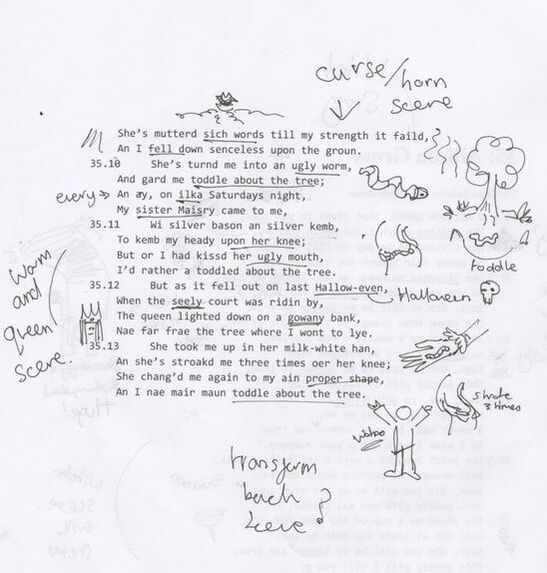 curse/horn
scene
She's mutterd sich words till my strength it faild,
An I fell down senceless upon the groun.
35.10 She's turnd me into an ugly worm,
And gard me toddle about the tree;
every → An ay, on ilka Saturdays night,
My sister Maisry came to me,
35.11 Wi silver bason an silver kemb,
To kemb my heady upon her knee;
But or I had kissd her ugly mouth,
I'd rather a toddled about the tree.
toddle
35.12 But as it fell out on last Hallow-even,
Halloween
When the seely court was ridin by,
The queen lighted down on a gowany bank,
Nae far frae the tree where I wont to lye.
35.13 She took me up in her milk-white han,
An she's stroakd me three times oer her knee;
She chang'd me again to my ain proper shape,
An I nae mair maun toddle about the tree.
Worm
and
queen
scene
stroke
3 times
Wahoo
transform
back
scene?